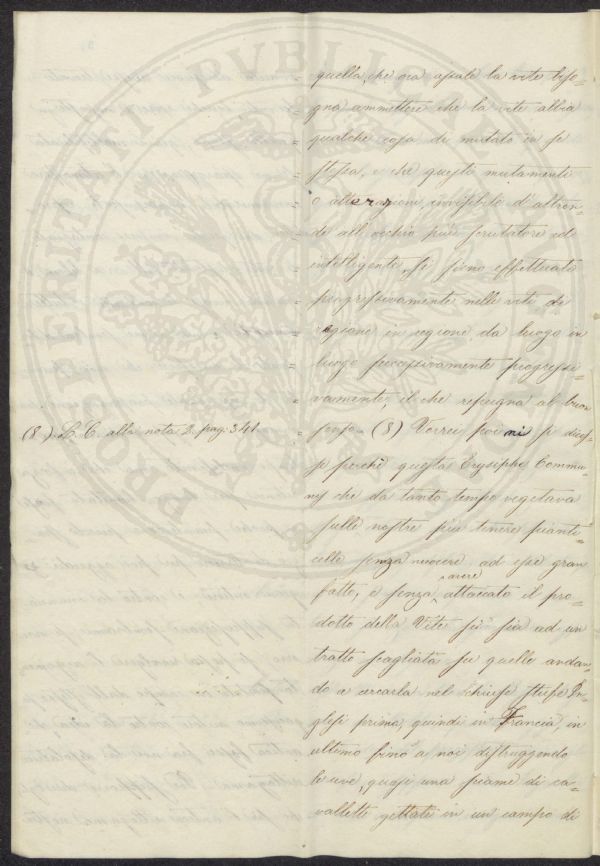 quella, che ora assale la vite biso=
gna ammettere che la vite abbia
qualche cosa di mutato in se
stessa, e che questi mutamenti
o alterazioni, invisibile d'altron=
de all'occhio più scrutatore ed
intelligente, si sieno effettuate
progressivamente nelle viti da
regione in regione, da luogo in
luogo successivamente progressi=
vamente, il che repugna al buon
(8) L. C. alla nota 2. pag. 341
senso. (8) Vorrei poi mi si dices=
se perchè questa Erysiphe Commu=
nis che da tanto tempo vegetava
sulle nostre più tenere pianti=
celle senza nuocere ad esse gran
fatto, e senza avere attaccato il pro=
dotto della Vite si sia ad un
tratto scagliata su quelle andan=
do a cercarla nel chiuse stufe In=
glesi prima, quindi in Francia, in
ultimo fino a noi distruggendo
le uve, quasi una sciame di ca=
vallette gettate in un campo di
PROSPERITATI PVBLICAE